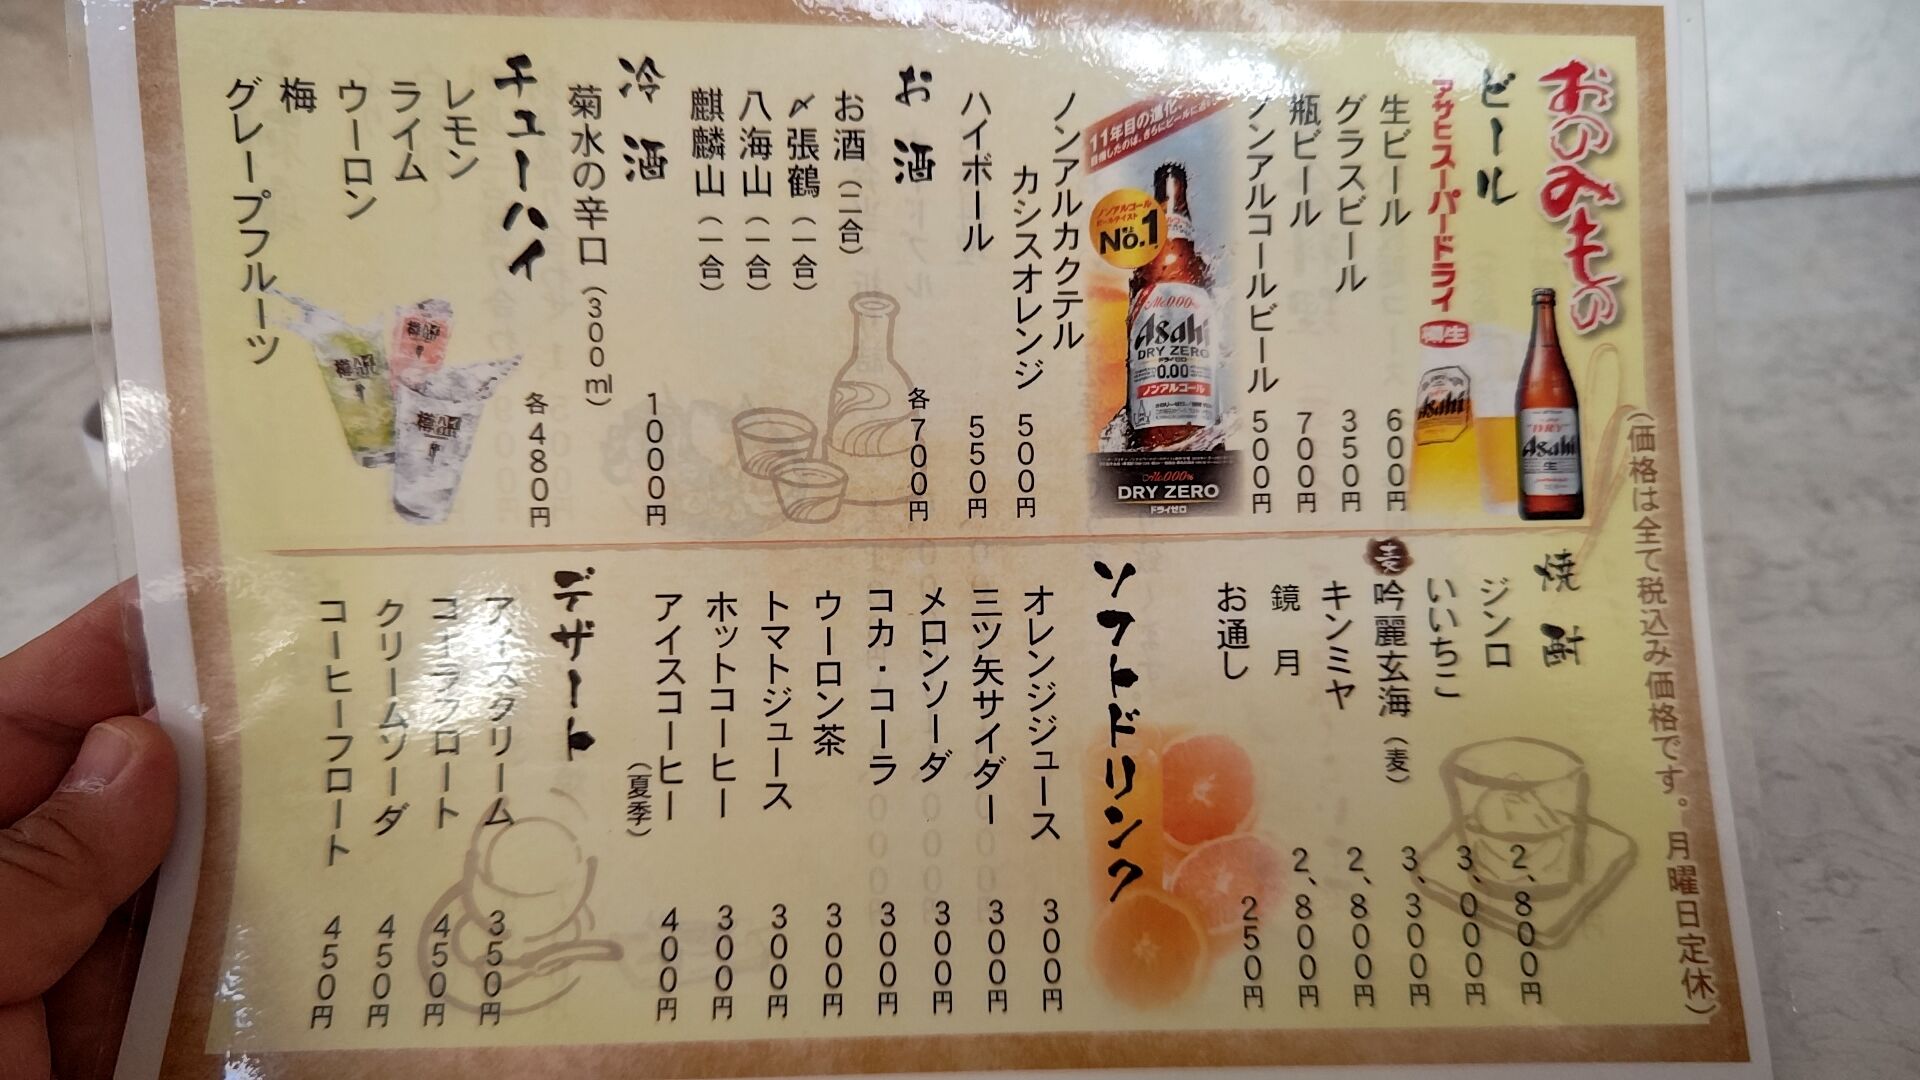 おのみもの
ビール
アサヒスーパードライ
樽生
生ビール 600円
グラスビール 350円
瓶ビール 700円
ノンアルコールビール 500円
11年目の進化。
ノンアルコール
No.1
Alc.0.00%
Asahi
DRY ZERO
ドライゼロ
0.00
ノンアルコール
Alc.0.00%
DRY ZERO
ドライゼロ
Asahi
DRY
Asahi
生
ノンアルカクテル
カシスオレンジ 500円
ハイボール 550円
お酒 各700円
お酒(二合)
〆張鶴(一合)
八海山(一合)
麒麟山(一合)
冷酒 1000円
菊水の辛口(300ml)
チューハイ 各480円
レモン
ライム
ウーロン
梅
グレープフルーツ
(価格は全て税込み価格です。月曜日定休)
焼酎
ジンロ 2、800円
いいちこ 3、000円
麦
吟麗玄海(麦) 3、300円
キンミヤ 2、800円
鏡月 2、800円
お通し 250円
ソフトドリンク
オレンジジュース 300円
三ツ矢サイダー 300円
メロンソーダ 300円
コカ・コーラ 300円
ウーロン茶 300円
トマトジュース 300円
ホットコーヒー 300円
アイスコーヒー 400円
(夏季)
デザート
アイスクリーム 350円
コーラフロート 450円
クリームソーダ 450円
コーヒーフロート 450円